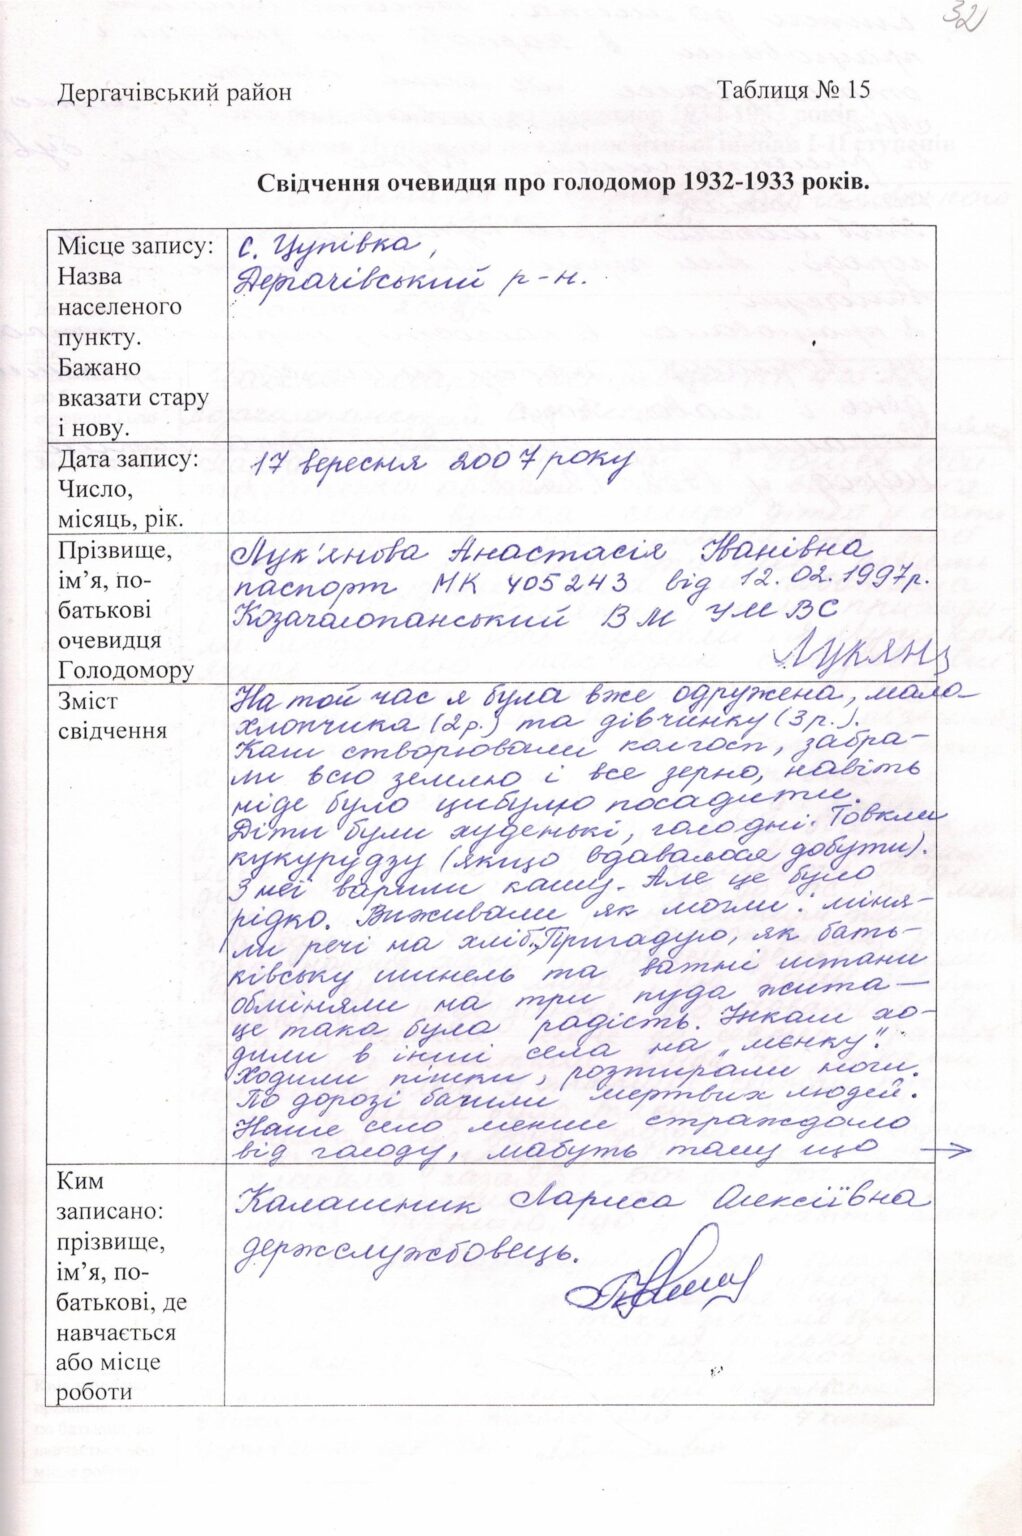 32
Дергачівський район Таблиця № 15
Свідчення очевидця про голодомор 1932-1933 років.
Місце запису:
Назва
населеного
пункту.
Бажано
вказати стару
і нову.
с. Цупівка,
Дергачівський р-н.
Дата запису:
Число,
місяць, рік.
17 вересня 2007 року
Прізвище,
ім’я, по-
батькові
очевидця
Голодомору
Лук'янова Анастасія Іванівна
паспорт МК 405243 від 12.02.1997р.
Козачалопанський ВМ УМВС
Лукян
Зміст
свідчення
На той час я була вже одружена, мала
хлопчика (2р.) та дівчинку (3р.).
Коли створювали колгосп, забра-
ли всю землю і все зерно, навіть
ніде було цибулю посадити.
Діти були худенькі, голодні. Товкли
кукурудзу (якщо вдавалося добути).
З неї варили кашу. Але це було
рідко. Виживали як могли: міня-
ли речі на хліб. Пригадую, як бать-
ківську шинель та ватні штани
обміняли на три пуда жита —
це така була радість. Інколи хо-
дили в інші села на „мєнку".
Ходили пішки, розтирали ноги.
По дорозі бачили мертвих людей.
Наше село менше страждало
від голоду, мабуть тому що →
Ким
записано:
прізвище,
ім’я, по-
батькові, де
навчається
або місце
роботи
Калашник Лариса Олексіївна
держслужбовець.